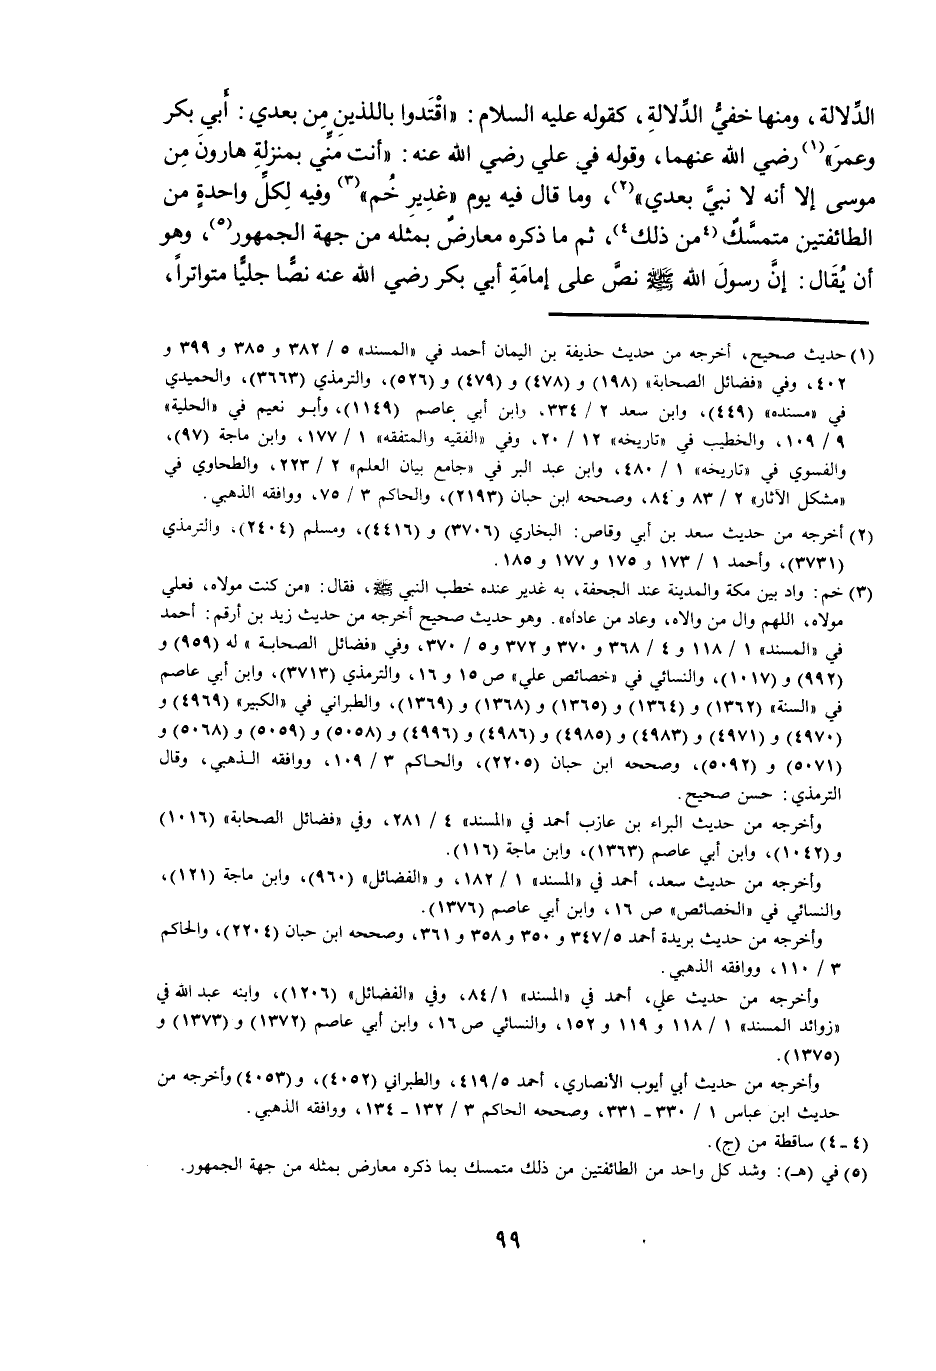 الدِّلالة، ومنها خفيُّ الدِّلالةِ، كقوله عليه السلام: «اقْتَدوا باللذينِ مِن بعدي: أَبي بكر
وعمرَ»(١) رضي الله عنهما، وقوله في علي رضي الله عنه: «أنت مَنِّي بمنزلةِ هارونَ مِن
موسى إلا أنه لا نبيَّ بعدي»(٢)، وما قال فيه يوم «غديرِ خُم»(٣) وفيه لِكلِّ واحدةٍ من
الطائفتين متمسَّكٌ (٤من ذلك٤)، ثم ما ذكره معارضٌ بمثله من جهة الجمهور(٥)، وهو
أن يُقَال: إنَّ رسولَ الله ﷺ نصَّ على إمامَةِ أبي بكر رضي الله عنه نصًّا جليًّا متواتراً،
(١) حديث صحيح، أخرجه من حديث حذيفة بن اليمان أحمد في «المسند» ٥ / ٣٨٢ و ٣٨٥ و ٣٩٩ و
٤٠٢، وفي «فضائل الصحابة» (١٩٨) و (٤٧٨) و (٤٧٩) و (٥٢٦)، والترمذي (٣٦٦٣)، والحميدي
في «مسنده» (٤٤٩)، وابن سعد ٢ / ٣٣٤، وابن أبي عاصم (١١٤٩)، وأبو نعيم في «الحلية»
٩ / ١٠٩، والخطيب في «تاريخه» ١٢ / ٢٠، وفي «الفقيه والمتفقه» ١ / ١٧٧، وابن ماجة (٩٧)،
والفسوي في «تاريخه» ١ / ٤٨٠، وابن عبد البر في «جامع بيان العلم» ٢ / ٢٢٣، والطحاوي في
«مشكل الآثار» ٢ / ٨٣ و ٨٤، وصححه ابن حبان (٢١٩٣)، والحاكم ٣ / ٧٥، ووافقه الذهبي.
(٢) أخرجه من حديث سعد بن أبي وقاص: البخاري (٣٧٠٦) و (٤٤١٦)، ومسلم (٢٤٠٤)، والترمذي
(٣٧٣١)، وأحمد ١ / ١٧٣ و ١٧٥ و ١٧٧ و ١٨٥.
(٣) خم: واد بين مكة والمدينة عند الجحفة، به غدير عنده خطب النبي ﷺ، فقال: «من كنت مولاه، فعلي
مولاه، اللهم وال من والاه، وعاد من عاداه». وهو حديث صحيح أخرجه من حديث زيد بن أرقم: أحمد
في «المسند» ١ / ١١٨ و ٤ / ٣٦٨ و ٣٧٠ و ٣٧٢ و ٥ / ٣٧٠، وفي «فضائل الصحابة» له (٩٥٩) و
(٩٩٢) و (١٠١٧)، والنسائي في «خصائص علي» ص ١٥ و ١٦، والترمذي (٣٧١٣)، وابن أبي عاصم
في «السنة» (١٣٦٢) و (١٣٦٤) و (١٣٦٥) و (١٣٦٨) و (١٣٦٩)، والطبراني في «الكبير» (٤٩٦٩) و
(٤٩٧٠) و (٤٩٧١) و (٤٩٨٣) و (٤٩٨٥) و (٤٩٨٦) و (٤٩٩٦) و (٥٠٥٨) و (٥٠٥٩) و (٥٠٦٨) و
(٥٠٧١) و (٥٠٩٢)، وصححه ابن حبان (٢٢٠٥)، والحاكم ٣ / ١٠٩، ووافقه الذهبي، وقال
الترمذي: حسن صحيح.
وأخرجه من حديث البراء بن عازب أحمد في «المسند» ٤ / ٢٨١، وفي «فضائل الصحابة» (١٠١٦)
و (١٠٤٢)، وابن أبي عاصم (١٣٦٣)، وابن ماجة (١١٦).
وأخرجه من حديث سعد، أحمد في «المسند» ١ / ١٨٢، و «الفضائل» (٩٦٠)، وابن ماجة (١٢١)،
والنسائي في «الخصائص» ص ١٦، وابن أبي عاصم (١٣٧٦).
وأخرجه من حديث بريدة أحمد ٥/ ٣٤٧ و ٣٥٠ و ٣٥٨ و ٣٦١، وصححه ابن حبان (٢٢٠٤)، والحاكم
٣ / ١١٠، ووافقه الذهبي.
وأخرجه من حديث علي، أحمد في «المسند» ١/ ٨٤، وفي «الفضائل» (١٢٠٦)، وابنه عبد الله في
«زوائد المسند» ١ / ١١٨ و ١١٩ و ١٥٢، والنسائي ص ١٦، وابن أبي عاصم (١٣٧٢) و (١٣٧٣) و
(١٣٧٥).
وأخرجه من حديث أبي أيوب الأنصاري، أحمد ٥/ ٤١٩، والطبراني (٤٠٥٢)، و (٤٠٥٣) وأخرجه من
حديث ابن عباس ١ / ٣٣٠ ـ ٣٣١، وصححه الحاكم ٣ / ١٣٢ ـ ١٣٤، ووافقه الذهبي.
(٤ ـ ٤) ساقطة من (ج).
(٥) في (هـ): وشد كل واحد من الطائفتين من ذلك متمسك بما ذكره معارض بمثله من جهة الجمهور.
٩٩